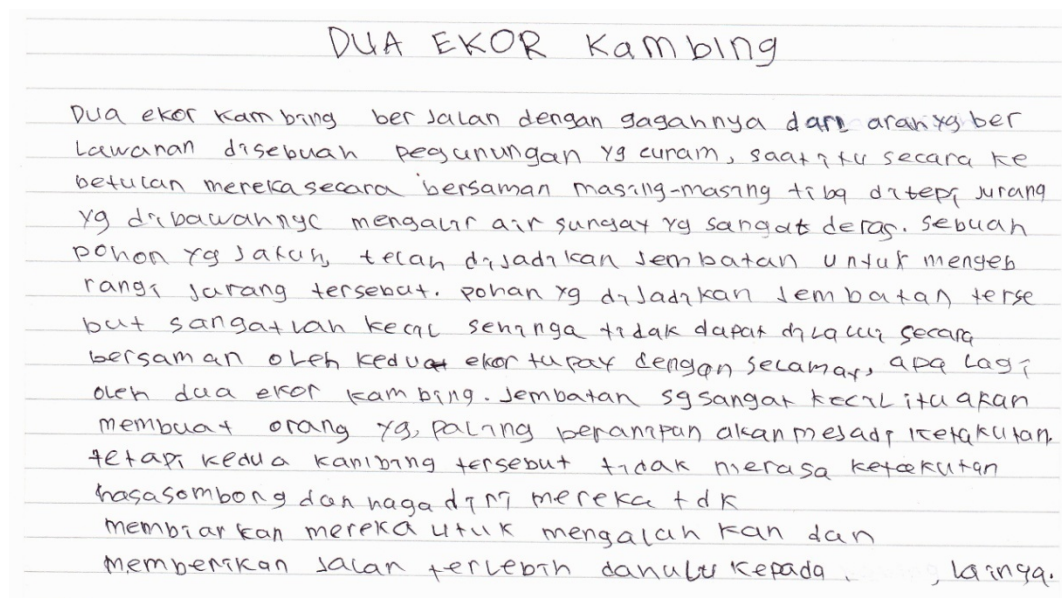 DUA EKOR Kambing
Dua ekor kambing ber Jalan dengan gagahnya dari arah yg ber
Lawanan disebuah pegunungan yg curam, saat itu secara ke
betulan mereka secara bersaman masing-masing tiba ditepi jurang
yg dibawahnyc mengalir air sungay yg sangat deras. sebuah
pohon yg Jatuh, telah diJadikan Jembatan untuk mengeb
rangi Jurang tersebut. pohan yg diJadikan Jembatan terse
but sangatlah kecil sehinga tidak dapat dilalui secara
bersaman oleh kedua ekor tupay dengan selamat, apa Lagi
oleh dua ekor kambing. Jembatan sgsangat kecil itu akan
membuat orang yg, paling beranipun akan mejadi ketakutan
tetapi kedua kambing tersebut tidak merasa ketakutan
hasasombong dan haga diri mereka tdk
membiar kan mereka utuk mengalah kan dan
memberikan Jalan terlebih dahulu kepada , lainya.